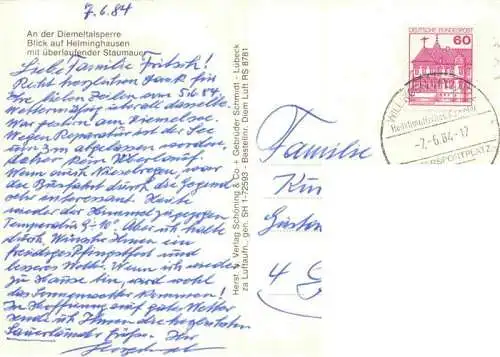 7.6.84
An der Diemeltalsperre
Blick auf Helminghausen
mit überlaufender Staumauer
Liebe Familie Fritsch!
Recht herzlichen Dank für
Ihre lieben Zeilen vom 5.6.84.
Wettermäßig überall dasselbe.
War gestern am Diemelsee.
Wegen Reparatur ist der See
um 3 m abgelassen worden,
daher kein Überlauf.
Wenn auch Nieselregen, war
die Busfahrt durch die Gegend
sehr interessant. Heute
wieder der Himmel zugezogen
Temperatur 9-10°. Aber ich halte
durch. Wünsche Ihnen ein
freudiges Pfingstfest und
besseres Wetter. Wenn ich wieder
zu Hause bin, wird wohl
das Sommerwetter kommen!
In Hoffnung auf gutes Wetter
sende ich Ihnen die herzlichsten
Sauerländer Grüße. Ihr
Herst. u. Verlag Schöning & Co + Gebrüder Schmidt - Lübeck
zu Luftaufn., gen. SH 1-72593 - Bestellnr. Diem Luft RS 8781
DEUTSCHE BUNDESPOST
60
WILL
Heilklimatischer Kurort
-7.-6.84-17
ERSPORTPLATZ
Familie
4